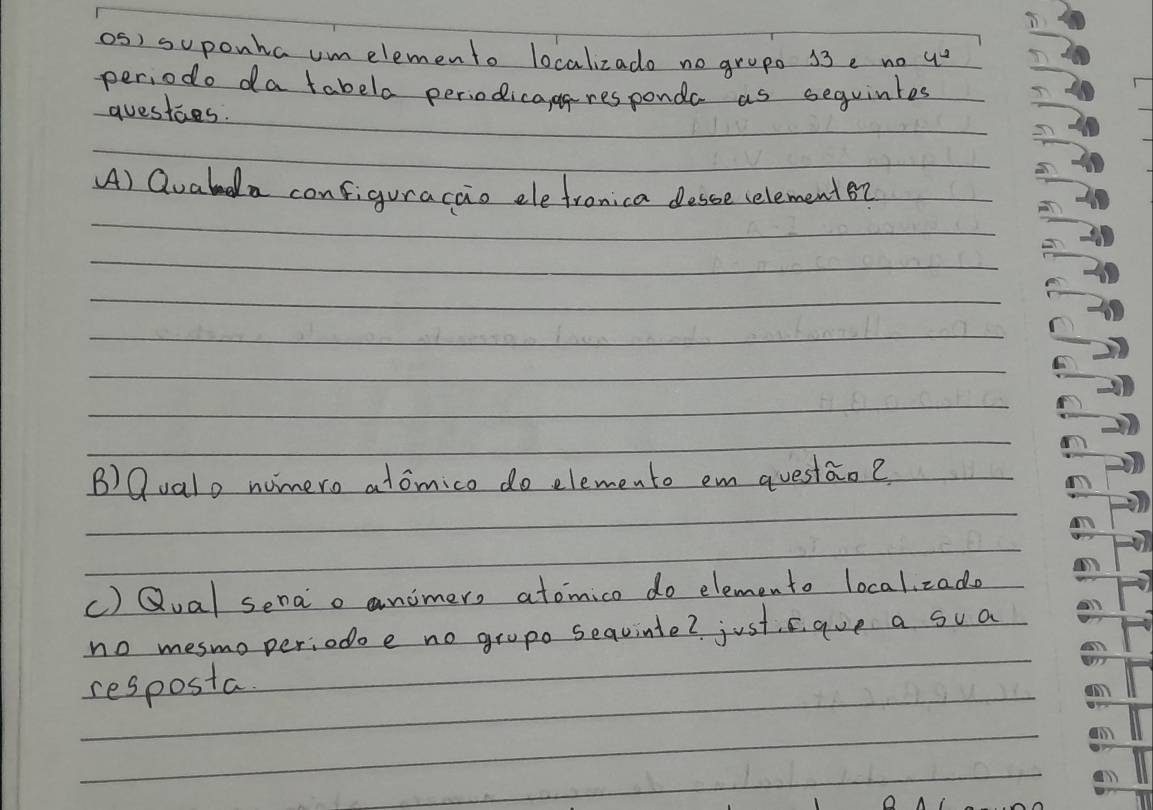 05) suponha um elemento localizado no grupo 13 e no 4º
periodo da tabela periodica, responda as seguintes
questões.
A) Qual a configuração eletronica desse elemento?
B) Qual o número atômico do elemento em questão?
C) Qual será o número atômico do elemento localizado
no mesmo periodo e no grupo seguinte? justifique a sua
resposta.